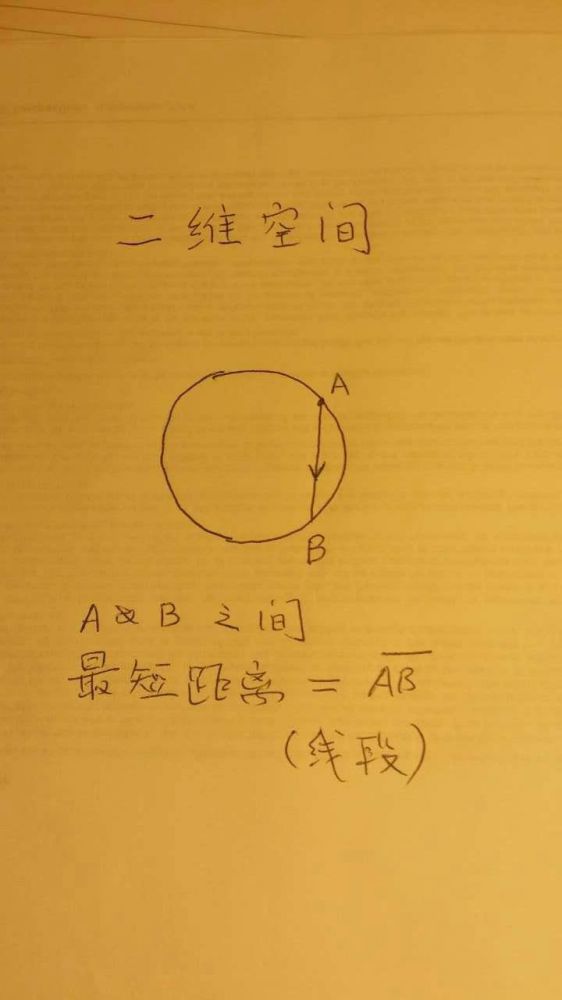 二维空间
A
B
A & B 之间
最短距离 = A̅B̅
(线段)